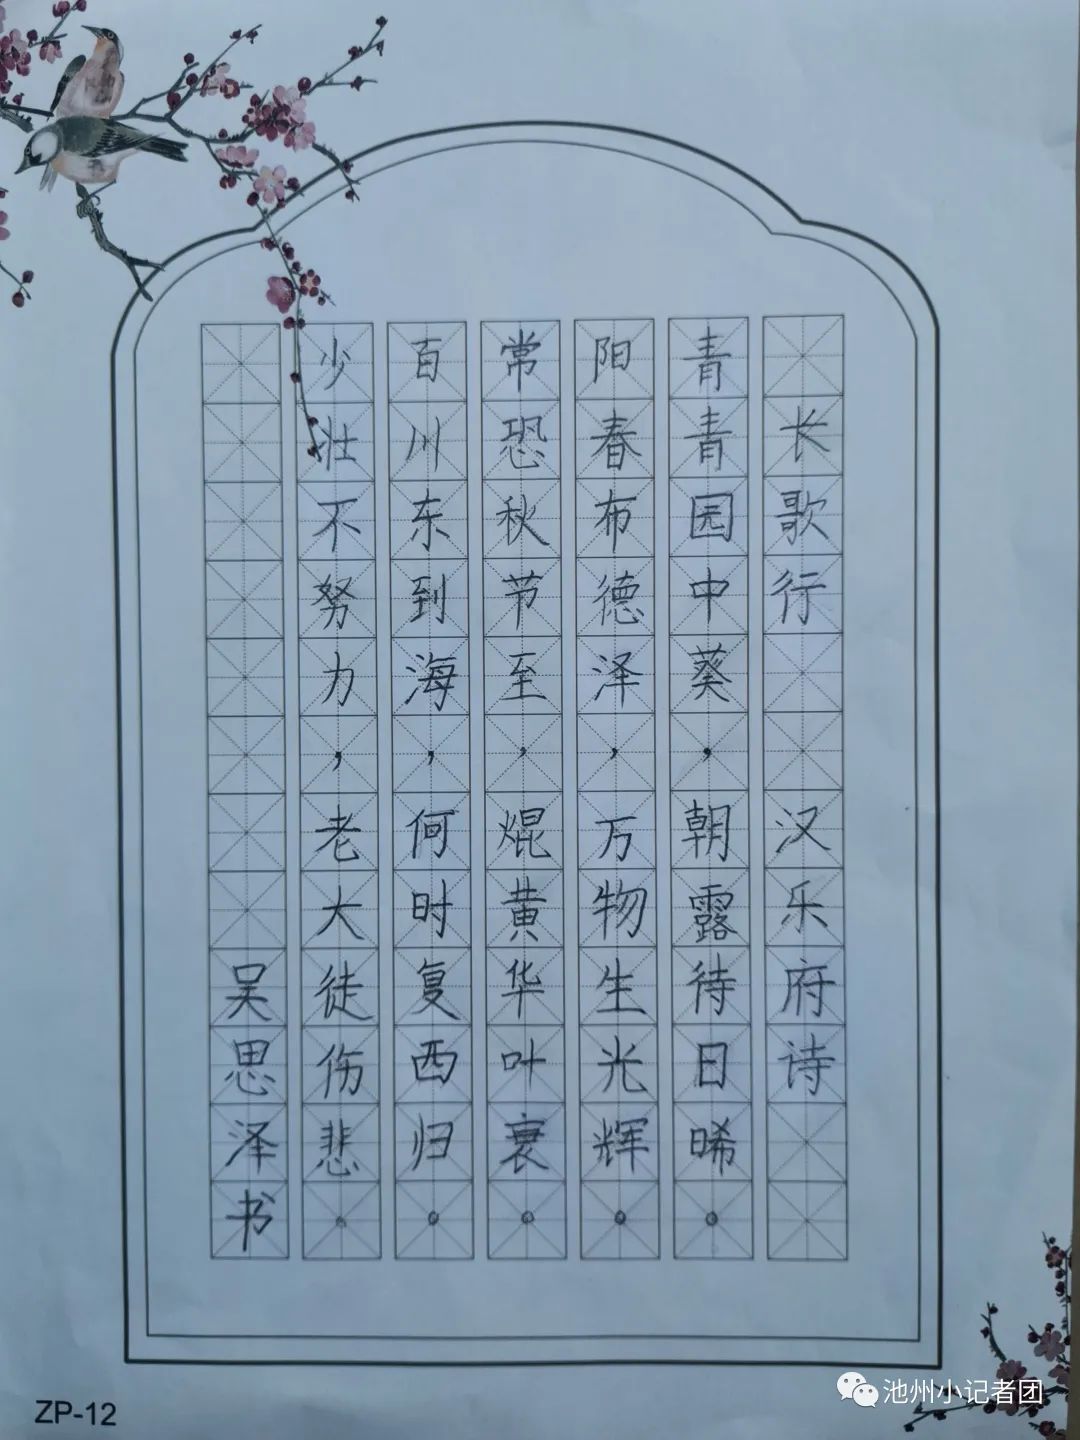 长歌行 汉乐府诗
青青园中葵，朝露待日晞。
阳春布德泽，万物生光辉。
常恐秋节至，焜黄华叶衰。
百川东到海，何时复西归。
少壮不努力，老大徒伤悲。
吴思泽书
ZP-12
池州小记者团